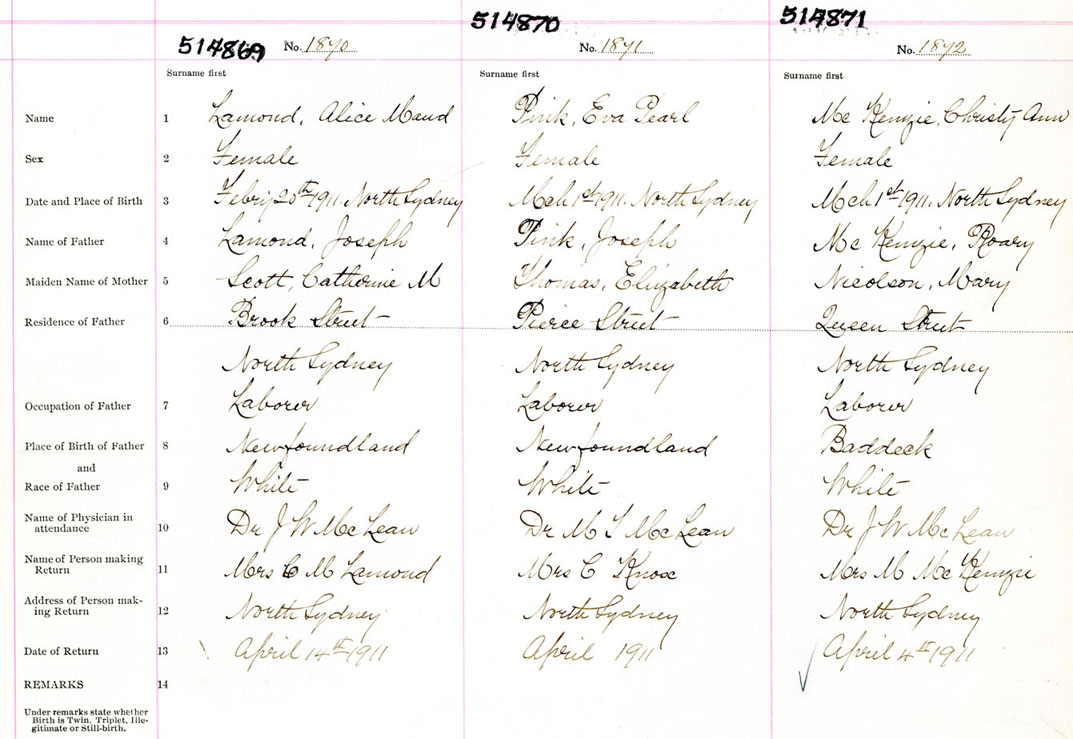 514869 No. 1870 514870 No. 1871 514871 No. 1872
Surname first Surname first Surname first
Name 1 Lamond, Alice Maud Pink, Eva Pearl Mc Kenzie, Christy Ann
Sex 2 Female Female Female
Date and Place of Birth 3 Febry 20th 1911. North Sydney Mch 1st 1911. North Sydney Mch 1st 1911. North Sydney
Name of Father 4 Lamond, Joseph Pink, Joseph Mc Kenzie, Roary
Maiden Name of Mother 5 Scott, Catherine M Thomas, Elizabeth Nicolson, Mary
Residence of Father 6 Brook Street Pierce Street Queen Street
North Sydney North Sydney North Sydney
Occupation of Father 7 Laborer Laborer Laborer
Place of Birth of Father 8 Newfoundland Newfoundland Baddeck
and
Race of Father 9 White White White
Name of Physician in
attendance 10 Dr J W McLean Dr M T McLean Dr J W McLean
Name of Person making
Return 11 Mrs C M Lamond Mrs C Knox Mrs M McKenzie
Address of Person mak-
ing Return 12 North Sydney North Sydney North Sydney
Date of Return 13 April 14th 1911 April 1911 April 4th 1911
REMARKS 14
Under remarks state whether
Birth is Twin, Triplet, Ille-
gitimate or Still-birth.